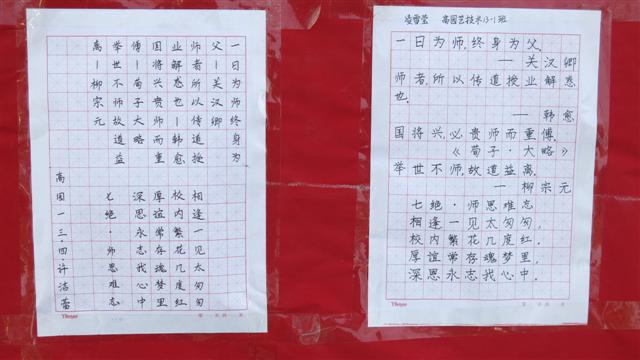 一日为师终身为
父—关汉卿
师者所以传道授
业解惑也—韩愈
国将兴贵师而重
傅—荀子大略
举世不师故道益
离—柳宗元
七绝·师恩难忘
相逢一见太匆匆
校内繁花几度红
厚谊常存魂梦里
深恩永志我心中
高园一三·四·许洁蕾
凌雪莹 高园艺技术13-1班
一日为师,终身为父.
—关汉卿
师者,所以传道授业解惑
也.
—韩愈
国将兴,必贵师而重傅.
《荀子·大略》
举世不师,故道益离.
—柳宗元
七绝·师恩难忘
相逢一见太匆匆,
校内繁花几度红.
厚谊常存魂梦里,
深恩永志我心中.